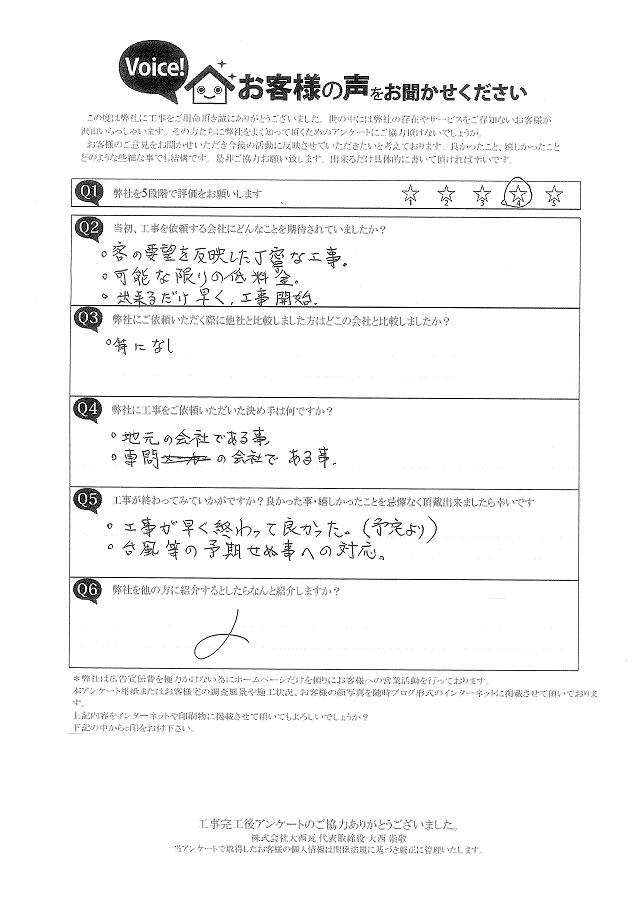 Voice!
お客様の声をお聞かせください
この度は弊社に工事をご用命頂き誠にありがとうございました。世の中には弊社の存在やサービスをご存知ないお客様が
沢山いらっしゃいます。その方たちに弊社をよく知って頂くためのアンケートにご協力頂けないでしょうか。
お客様のご意見をお聞かせいただき今後の活動に反映させていただきたいと考えております。良かったこと、嬉しかったこと
どのような些細な事でも結構です。是非ご協力お願い致します。出来るだけ具体的に書いて頂ければ幸いです。
Q1 弊社を5段階で評価をお願いします
1 2 3 4 5
Q2 当初、工事を依頼する会社にどんなことを期待されていましたか？
○客の要望を反映した丁寧な工事。
○可能な限りの低料金。
○出来るだけ早く、工事開始。
Q3 弊社にご依頼いただく際に他社と比較しました方はどこの会社と比較しましたか？
○特になし
Q4 弊社に工事をご依頼いただいた決め手は何ですか？
○地元の会社である事
○専問の会社で ある事。
Q5 工事が終わってみていかがですか？良かった事・嬉しかったことを忌憚なく頂戴出来ましたら幸いです
○工事が早く終わって良かった。(予定より)
○台風等の予期せぬ事への対応。
Q6 弊社を他の方に紹介するとしたらなんと紹介しますか？
＊弊社は広告宣伝費を極力かけない為にホームページだけを頼りにお客様への営業活動を行っております。
本アンケート用紙またはお客様宅の調査風景や施工状況、お客様の顔写真を随時ブログ形式のインターネットに掲載させて頂いておりま
す。
上記内容をインターネットや印刷物に掲載させて頂いてもよろしいでしょうか？
下記の中から○印をお付下さい。
工事完工後アンケートのご協力ありがとうございました。
株式会社大西瓦 代表取締役 大西 崇敬
当アンケートで取得したお客様の個人情報は関係法規に基づき厳正に管理いたします。